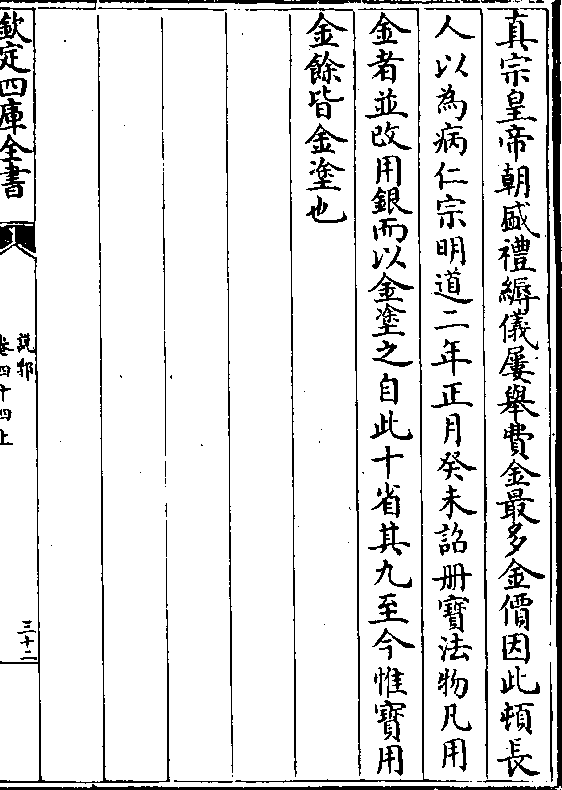 真宗皇帝朝盛禮縟儀屢舉費金最多金價因此頓長
人以為病仁宗明道二年正月癸未詔册寶法物凡用
金者並改用銀而以金塗之自此十省其九至今惟寶用
金餘皆金塗也
欽定四庫全書
說郛
卷四十四上
三十二